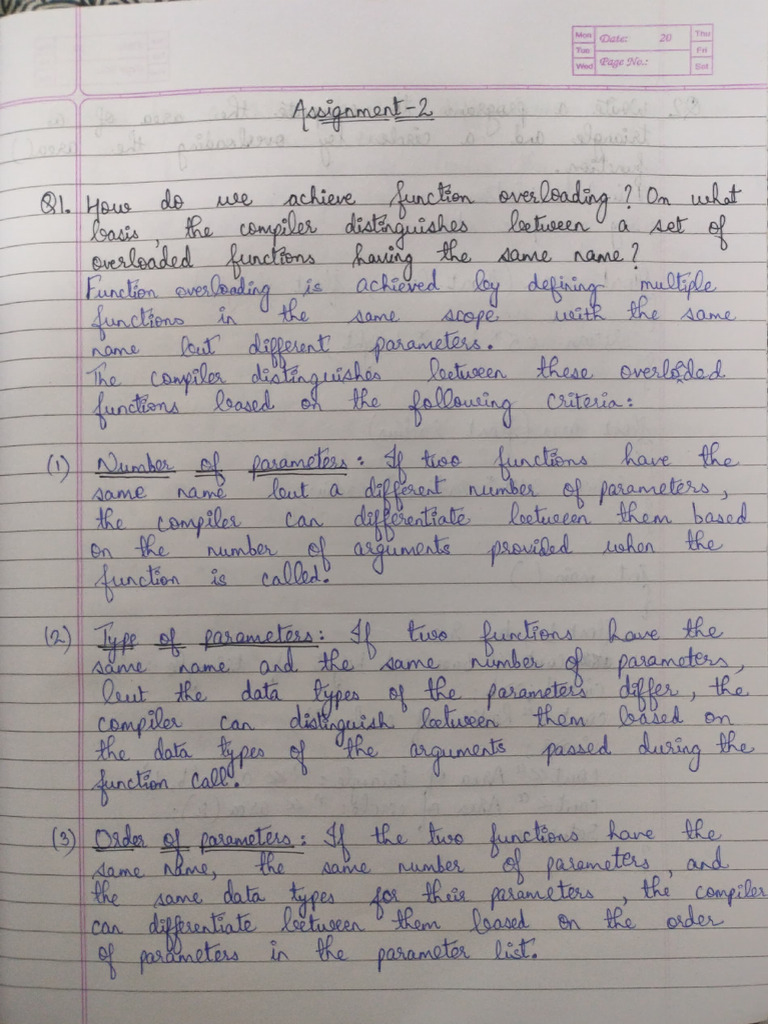 Mon Date: 20 Thu
Tue Fri
Wed Page No.: Sat
Assignment-2
Q1. How do we achieve function overloading? On what
basis, the compiler distinguishes between a set of
overloaded functions having the same name?
Function overloading is achieved by defining multiple
functions in the same scope with the same
name but different parameters.
The compiler distinguishes between these overloaded
functions based on the following criteria:
(1) Number of parameters: If two functions have the
same name but a different number of parameters,
the compiler can differentiate between them based
on the number of arguments provided when the
function is called.
(2) Type of parameters: If two functions have the
same name and the same number of parameters,
but the data types of the parameters differ, the
compiler can distinguish between them based on
the data types of the arguments passed during the
function call.
(3) Order of parameters: If the two functions have the
same name, the same number of parameters, and
the same data types for their parameters, the compiler
can differentiate between them based on the order
of parameters in the parameter list.